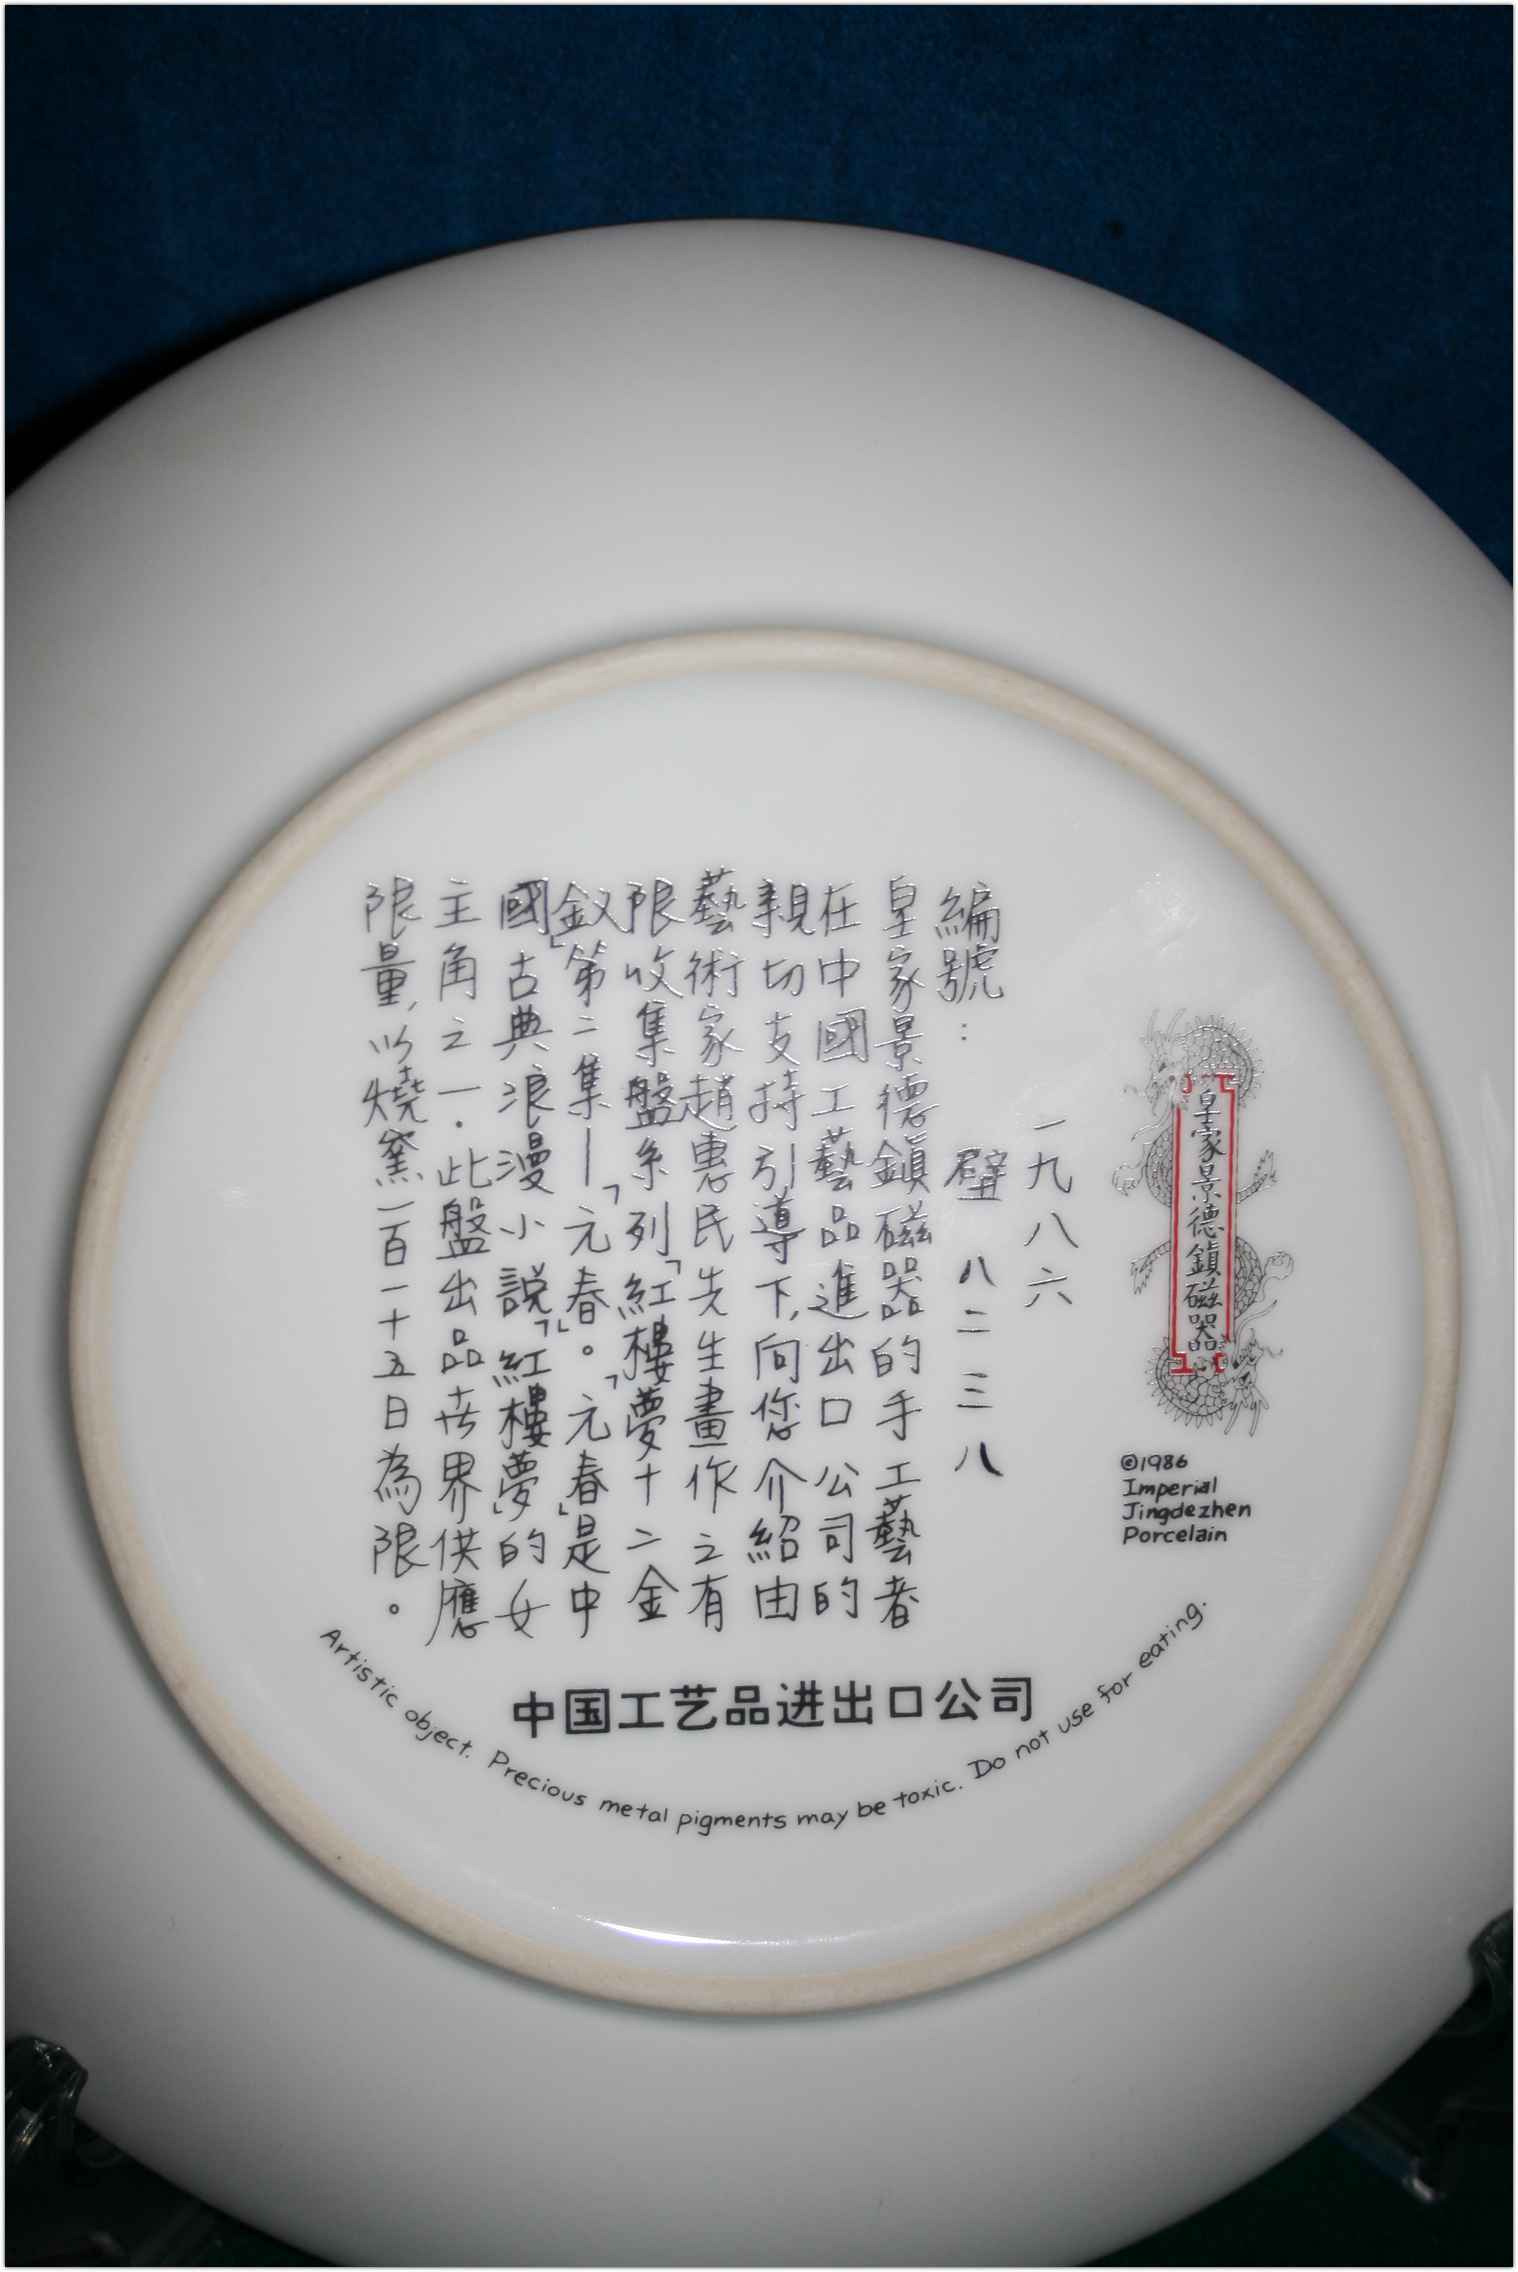 皇家景德鎮磁器
©1986
Imperial
Jingdezhen
Porcelain
一九八六
編號： 壁 八二三八
皇家景德鎮磁器的手工藝者
在中國工藝品進出口公司的
親切支持引導下，向您介紹由
藝術家趙惠民先生畫作之有
限收集盤系列「紅樓夢十二金
釵」第二集—「元春」。「元春」是中
國古典浪漫小說「紅樓夢」的女
主角之一．此盤出品世界供應
限量，以燒窯一百一十五日為限。
中国工艺品进出口公司
Artistic object. Precious metal pigments may be toxic. Do not use for eating.